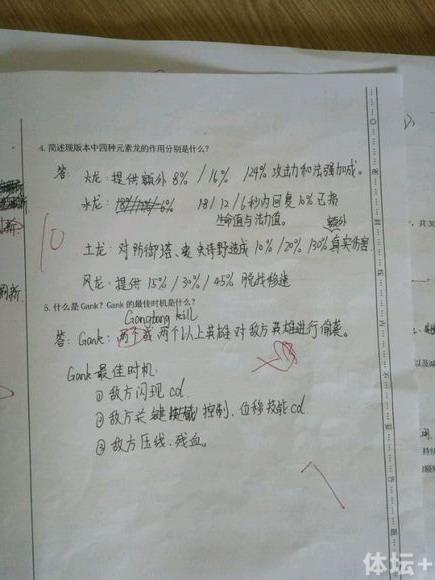 4. 简述现版本中四种元素龙的作用分别是什么?
答: 火龙: 提供额外 8% / 16% / 24% 攻击力和法强加成。
水龙: 18 / 12 / 6 秒内回复 10% 已损
生命值与法力值。
额外
土龙: 对防御塔、史诗野怪造成 10% / 20% / 30% 真实伤害
10
风龙: 提供 15% / 30% / 45% 脱战移速
5. 什么是 Gank? Gank 的最佳时机是什么?
Gangbang kill
答: Gank: 两个或两个以上英雄对敌方英雄进行偷袭。
Gank 最佳时机:
① 敌方闪现 cd
② 敌方关键控制、位移技能 cd
③ 敌方压线、残血。
7
体坛+